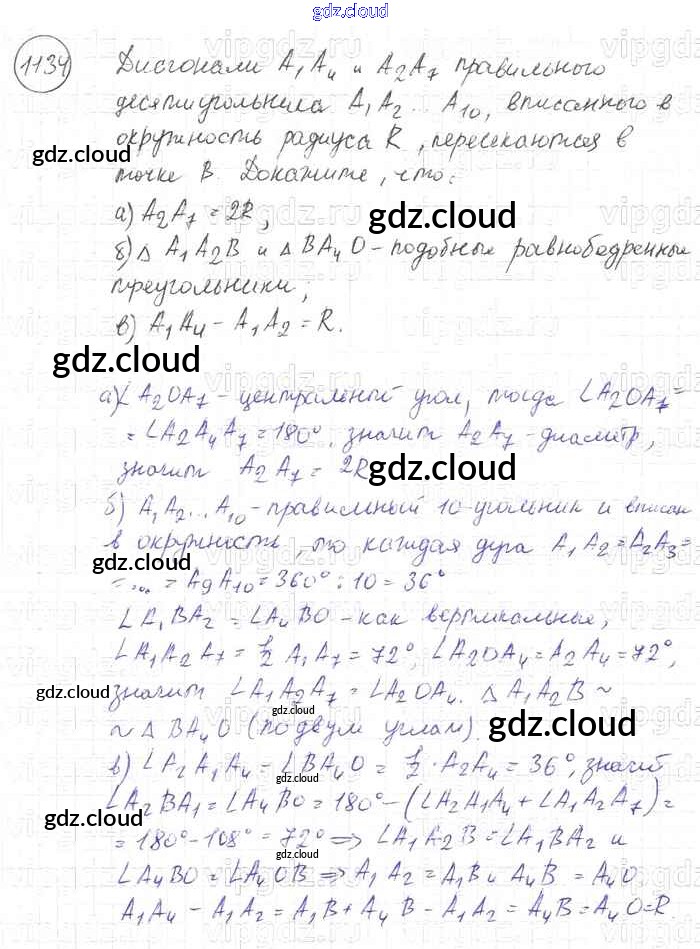 gdz.cloud
1134
Диагонали A₁A₄ и A₂A₇ правильного
десятиугольника A₁A₂...A₁₀, вписанного в
окружность радиуса R, пересекаются в
gdz.cloud
точке B. Докажите, что:
а) A₂A₇ = 2R,
gdz.cloud
б) △ A₁A₂B и △ BA₄O - подобные равнобедренные
треугольники;
в) A₁A₄ - A₁A₂ = R.
gdz.cloud
а) ∠A₂OA₇ - центральный угол, тогда ∠A₂OA₇ =
= ∪A₂A₄A₇ = 180°, значит A₂A₇ - диаметр,
значит A₂A₇ = 2R
gdz.cloud
б) A₁A₂...A₁₀ - правильный 10-угольник и вписан
в окружность, то каждая дуга A₁A₂ = A₂A₃ =
gdz.cloud
= ... = A₉A₁₀ = 360° : 10 = 36°
∠A₁BA₂ = ∠A₄BO - как вертикальные,
∠A₁A₂A₇ = ½ A₁A₇ = 72°, ∠A₂OA₄ = A₂A₄ = 72°,
gdz.cloud
значит ∠A₁A₂A₇ = ∠A₂OA₄. △ A₁A₂B ~
gdz.cloud
~ △ BA₄O (по двум углам).
gdz.cloud
в) ∠A₂A₁A₄ = ∠BA₄O = ½ · A₂A₄ = 36°, значит
gdz.cloud
∠A₂BA₁ = ∠A₄BO = 180° - (∠A₂A₁A₄ + ∠A₁A₂A₇) =
gdz.cloud
= 180° - 108° = 72° ⇒ ∠A₁A₂B = ∠A₁BA₂ и
gdz.cloud
∠A₄BO = ∠A₄OB ⇒ A₁A₂ = A₁B и A₄B = A₄O
A₁A₄ - A₁A₂ = A₁B + A₄B - A₁A₂ = A₄B = A₄O = R
gdz.cloud